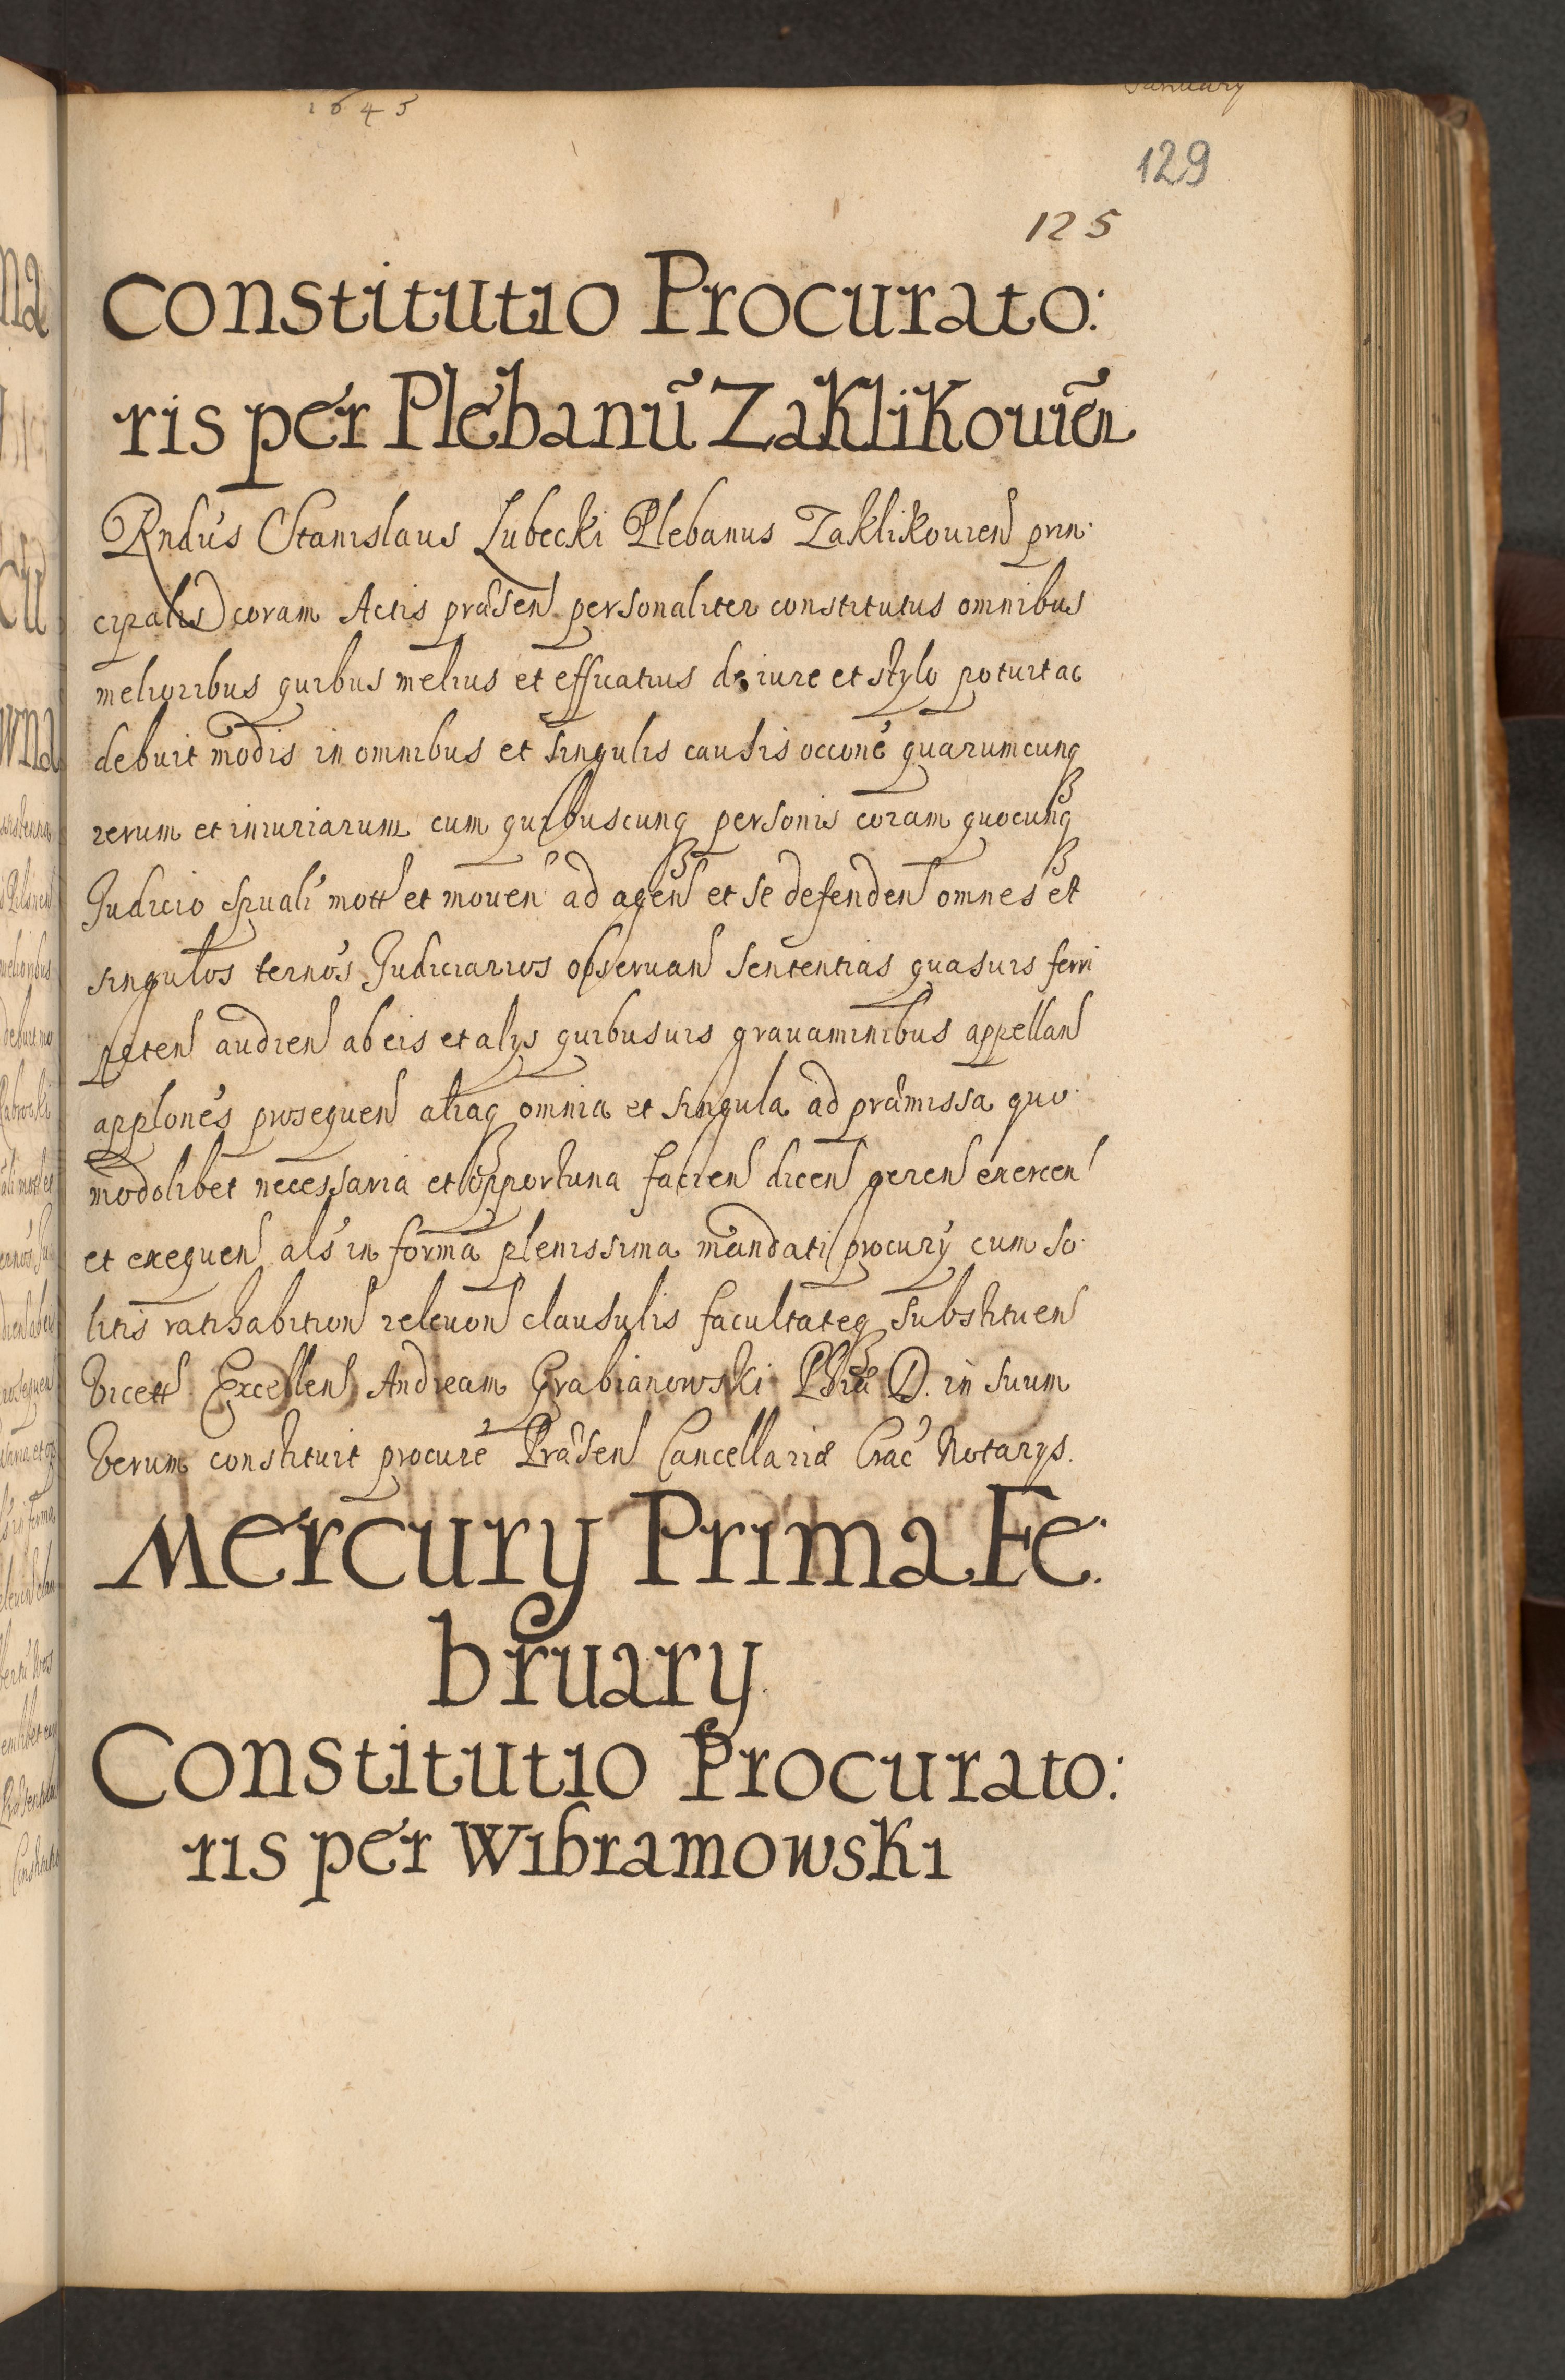 1645
January
129
125
Constitutio Procurato:
ris per Plebanũ Zaklikouieñ
Rndus Stanislaus Lubecki Plebanus Zaklikouien prin:
cipalis coram Actis præsen personaliter constitutus omnibus
melioribus quibus melius et efficatius de iure et stylo potuit ac
debuit modis in omnibus et singulis causis occone quarumcunq
rerum et iniuriarum cum quibuscunq personis coram quocunq
Judicio spuali mott et mouen ad agen et se defenden omnes et
singulos ternos Judiciarios obseruan sententias quasuis ferri
peten audien ab eis et alys quibusuis grauaminibus appellan
applones prosequen aliaq omnia et singula ad præmissa quo:
modolibet necessaria et opportuna facien dicen geren exercen
et exequen als in forma plenissima mandati procury cum so:
litis ratihabition releuon clausulis facultateq substituen
Vicett Excellen Andream Grabianowski Phiæ D. in suum
Verum constituit procure Præsen Cancellariæ Crac Notarys.
Mercury Prima Fe:
bruary
Constitutio Procurato:
ris per Wibramowski